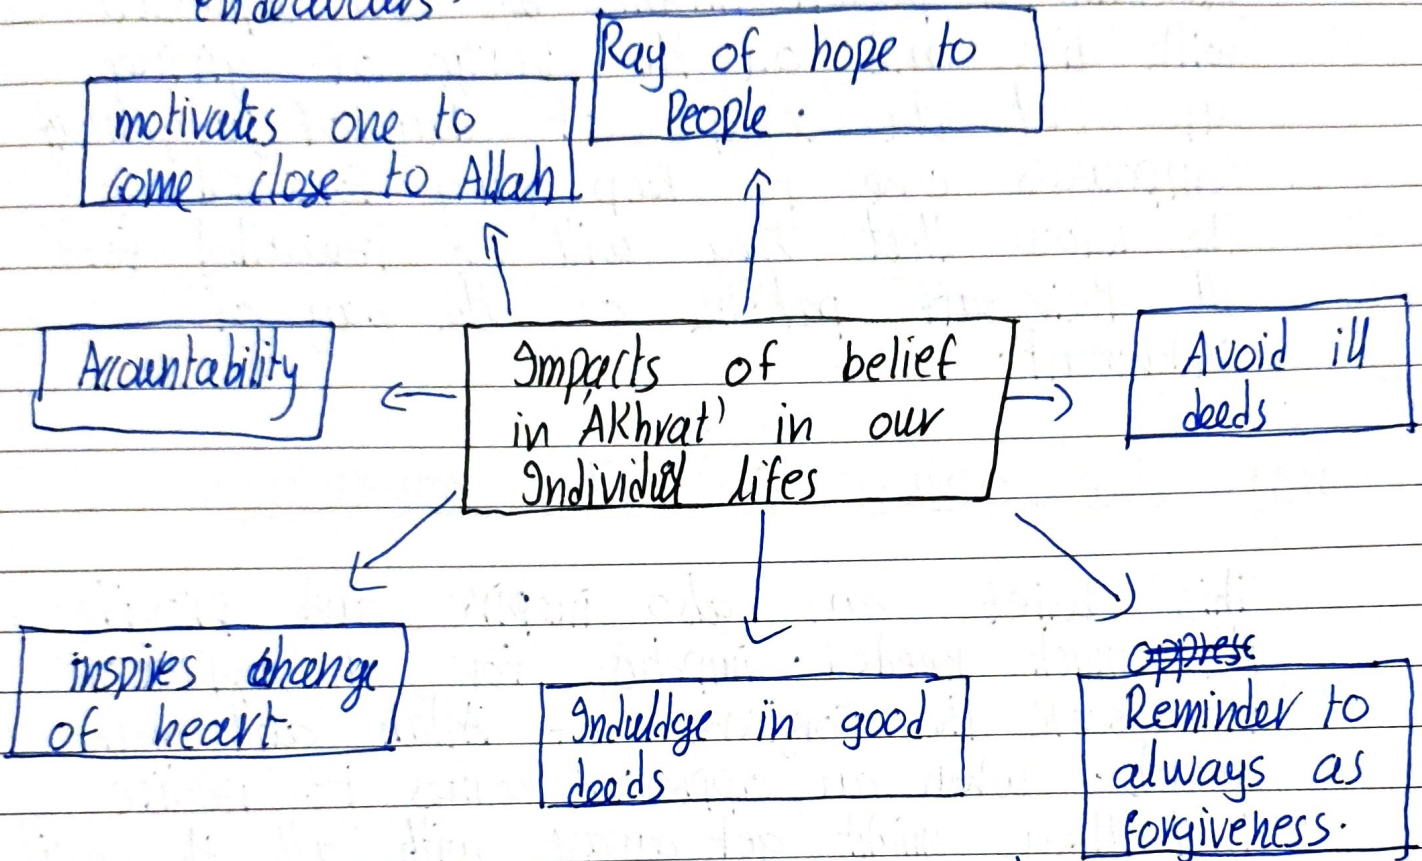 endeavours.
Ray of hope to
People.
motivates one to
come close to Allah
Accountability
Impacts of belief
in 'Akhrat' in our
Individual lifes
Avoid ill
deeds
inspires change
of heart.
Induldge in good
deeds
oppress
Reminder to
always as
forgiveness.